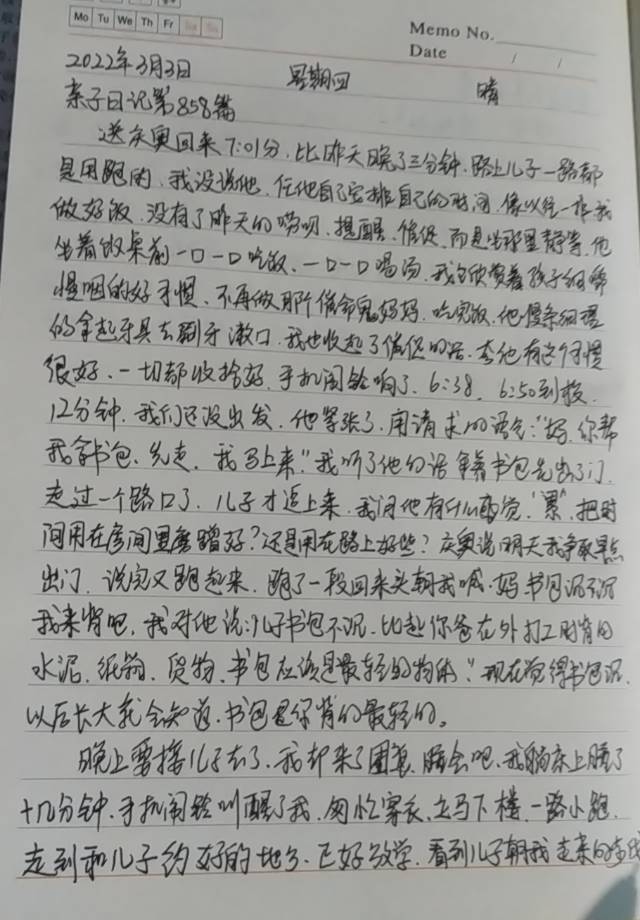 Mo Tu We Th Fr Sa Su
Memo No.
Date / /
2022年3月3日 星期四 晴
亲子日记第858篇
送庆奥回来7:01分,比昨天晚了三分钟,路上儿子一路都
是用跑的,我没说他,任他自己安排自己的时间,像以往一样我
做好饭,没有了昨天的唠叨、提醒、催促,而是坐那里静等,他
坐着饭桌前一口一口吃饭、一口一口喝汤,我欣赏着孩子细嚼
慢咽的好习惯,不再做那个催命鬼妈妈,吃完饭,他慢条细理
的拿起牙具去刷牙漱口,我也收起了催促的话,李他有这个习惯
很好,一切都收拾好,手机闹铃响了,6:38,6:50到校
12分钟,我们还没出发,他紧张了,用请求的语气:“妈,你帮
我拿书包,先走,我马上来”我听了他的话拿着书包先出了门,
走过一个路口了,儿子才追上来,我问他有什么感觉,“累”,把时
间用在房间里磨蹭好?还是用在路上好些?庆奥说明天我争取早点
出门,说完又跑起来,跑了一段回来头朝我喊,妈书包沉不沉
我来背吧,我对他说:儿子书包不沉,比起你爸在外打工时背的
水泥、纸箱、货物,书包应该是最轻的物体”现在觉得书包沉,
以后长大我会知道,书包是你背的最轻的。
晚上要接儿子去了,我却来了困意,睡会吧,我躺床上睡了
十几分钟,手机闹铃叫醒了我,匆忙穿衣,立马下楼,一路小跑,
走到和儿子约好的地方,正好放学,看到儿子朝我走来的